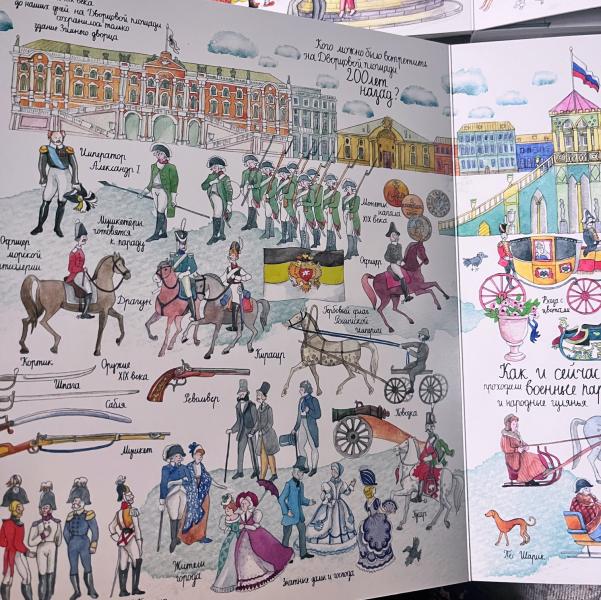 до наших дней на Дворцовой площади
сохранилось только
здание Зимнего дворца
Кого можно было встретить
на Дворцовой площади
200 лет
назад?
Император
Александр I
Мушкетёры
готовятся
к параду
Монеты
начала
XIX века
Офицер
морской
артиллерии
Драгун
Офицер
Гербовый флаг
Российской
империи
Кирасир
Кортик
Шпага
Сабля
Оружие
XIX века
Револьвер
Мушкет
Повозка
Гусар
Жители
города
Знатные дамы и господа
Ваза с
цветами
Как и сейчас
проходили военные пар
и народные гулянья
Пёс Шарик